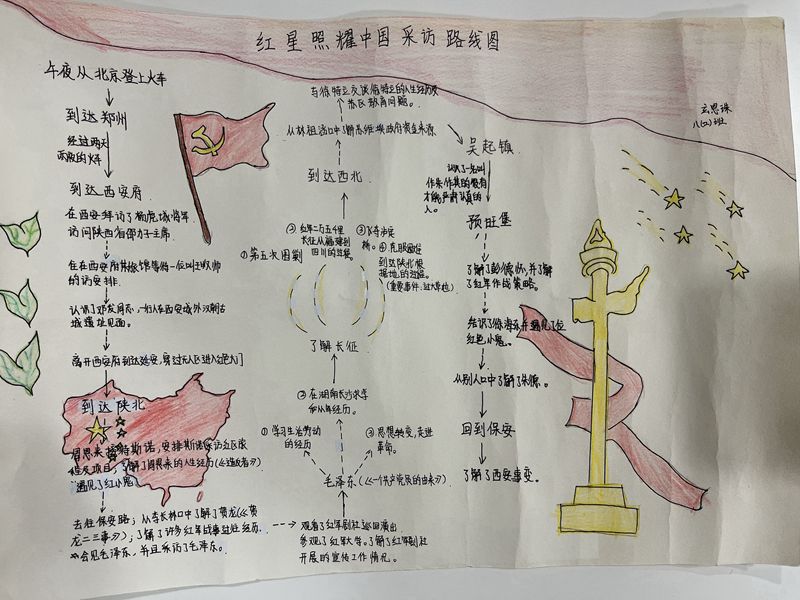 红星照耀中国采访路线图
玄思珠
八(四)班
午夜从北京登上火车
到达郑州
经过两天
两夜的火车
到达西安府
在西安拜访了杨虎城将军
访问陕西省邵力子主席
住在西安府宾馆等待一位叫王牧师
的访安排
认识了邓发同志,他们在西安城外汉朝古
城遗址见面。
离开西安府到达延安,穿过无人区进入
到达陕北
周恩来接待斯诺,安排斯诺
程及项目;了解了周恩来的人生经历(《造反者》)
遇见了红小鬼
去往保安路;从李长林口中了解了贺龙(《贺
龙二三事》);了解了许多红军战事过往经历
会见毛泽东,并且采访了毛泽东。
观看了红军剧社巡回演出
参观了红军大学。了解了红军剧社
开展的宣传工作情况。
毛泽东(《一个共产党员的由来》)
①学习生活劳动
的经历
②在湖南长沙求学
和从军经历。
③思想转变,走进
革命。
了解长征
①第五次围剿
②红军二万五千里
长征从福建到
四川的过程
③飞夺泸定
桥。
④
到达陕北根
据地的过程。
(重要事件:过大草地)
到达西北
从林祖涵口中了解苏维埃政府资金来源
与徐特立交谈徐特立的人生经历及
苏区教育问题。
吴起镇
认识了一名叫
作朱作其的很有
才能、严肃认真的
人。
预旺堡
了解了彭德怀,并了解
了红军作战策略。
结识了徐海东并遇见了位
红色小鬼。
从别人口中了解了朱德。
回到保安
了解了西安事变。